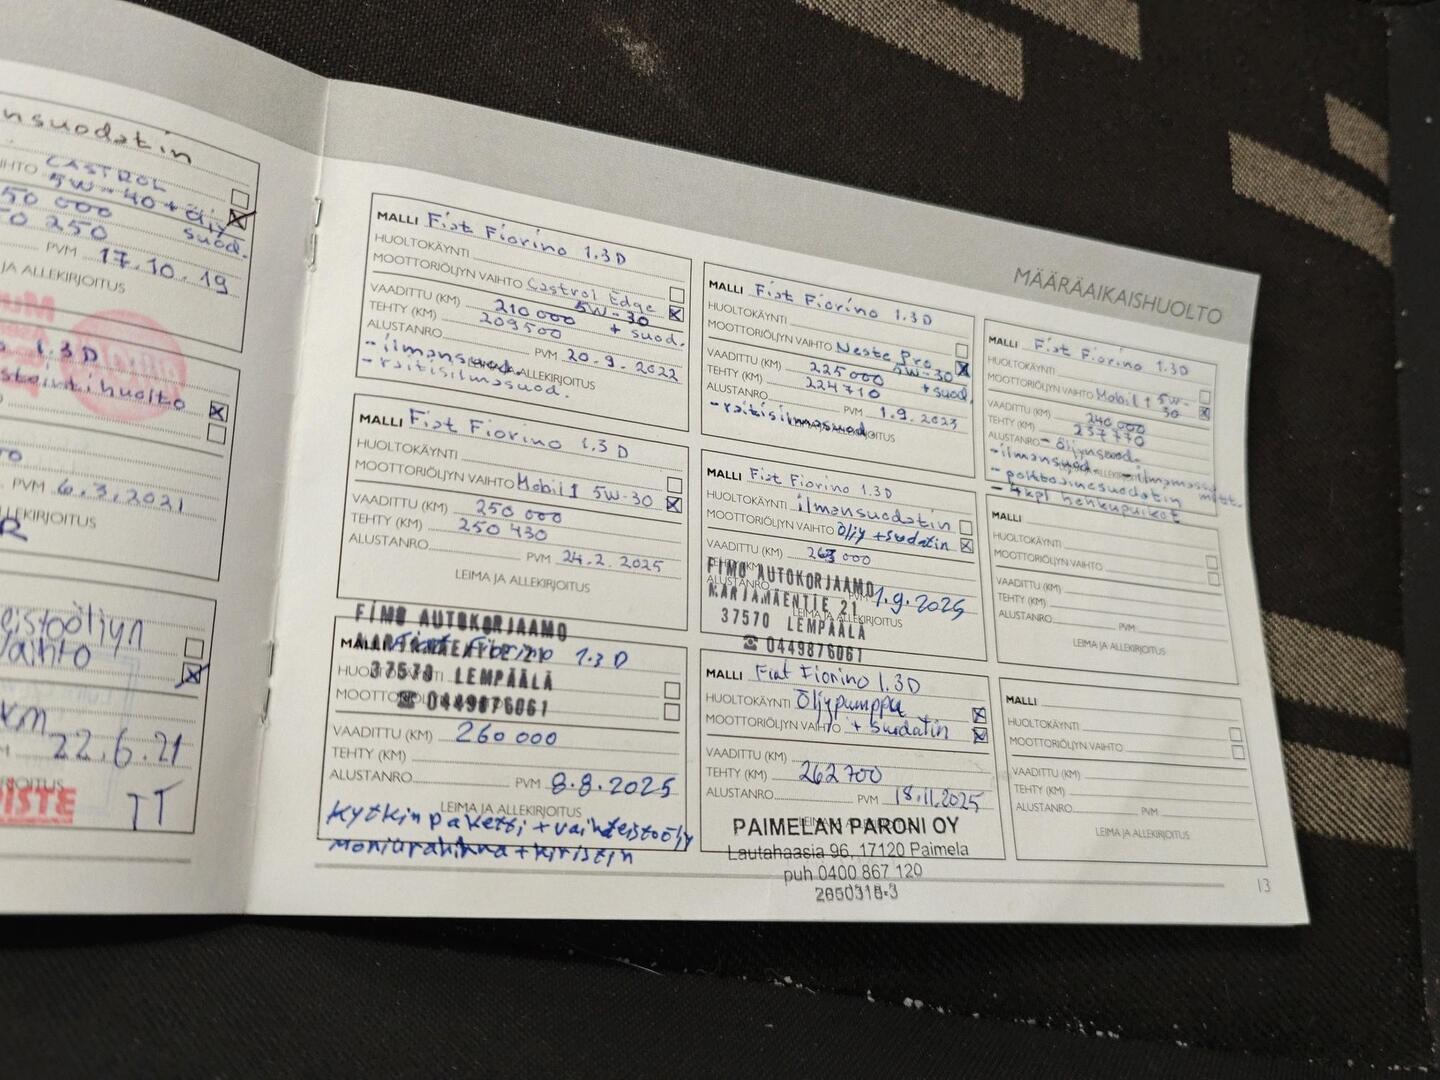 nsuodatin
CASTROL
5W-40 + öljy
suod.
50 000
50 250
PVM 17.10.19
JA ALLEKIRJOITUS
1.3D
huolto
PVM 6.3.2021
vaihto
km
22.6.21
TT
MÄÄRÄAIKAISHUOLTO
MALLI Fiat Fiorino 1.3D
HUOLTOKÄYNTI
MOOTTORIÖLJYN VAIHTO Castrol Edge
5W-30
VAADITTU (KM) 210 000 + suod.
TEHTY (KM) 209500
ALUSTANRO
PVM 20.9.2022
- ilmansuod.
- raitisilmasuod.
MALLI Fiat Fiorino 1.3D
HUOLTOKÄYNTI
MOOTTORIÖLJYN VAIHTO Mobil 1 5W-30
VAADITTU (KM) 250 000
TEHTY (KM) 250 430
ALUSTANRO
PVM 24.2.2025
LEIMA JA ALLEKIRJOITUS
FIMO AUTOKORJAAMO
MALLI Fiat Fiorino 1.3D
37570 LEMPÄÄLÄ
☎ 0449876061
VAADITTU (KM) 260 000
TEHTY (KM)
ALUSTANRO PVM 8.8.2025
LEIMA JA ALLEKIRJOITUS
Kytkinpaketti + vaihdeistoöljy
moniurahihna + kiristin
MALLI Fiat Fiorino 1.3D
HUOLTOKÄYNTI
MOOTTORIÖLJYN VAIHTO Neste Pro
5W-30
VAADITTU (KM) 225000 + suod.
TEHTY (KM) 224710
ALUSTANRO
PVM 1.9.2023
- raitisilmasuod.
MALLI Fiat Fiorino 1.3D
HUOLTOKÄYNTI ilmansuodatin
MOOTTORIÖLJYN VAIHTO Öljy + suodatin
VAADITTU (KM) 263 000
FIMO AUTOKORJAAMO
MARJAMÄENTIE 21
1.9.2025
37570 LEMPÄÄLÄ
☎ 0449876061
MALLI Fiat Fiorino 1.3D
HUOLTOKÄYNTI Öljypumppu
MOOTTORIÖLJYN VAIHTO + suodatin
VAADITTU (KM)
TEHTY (KM) 262700
ALUSTANRO
PVM 18.11.2025
PAIMELAN PARONI OY
Lautahaasia 96, 17120 Paimela
puh 0400 867 120
2650318-3
MALLI Fiat Fiorino 1.3D
HUOLTOKÄYNTI
MOOTTORIÖLJYN VAIHTO Mobil 1 5W-
30
VAADITTU (KM) 240 000
TEHTY (KM) 237770
ALUSTANRO - öljynsuod.
- ilmansuod. - ilmamassamitt.
- polttoainesuodatin
- 4kpl hehkutulpat
MALLI
HUOLTOKÄYNTI
MOOTTORIÖLJYN VAIHTO
VAADITTU (KM)
TEHTY (KM)
ALUSTANRO
PVM
LEIMA JA ALLEKIRJOITUS
MALLI
HUOLTOKÄYNTI
MOOTTORIÖLJYN VAIHTO
VAADITTU (KM)
TEHTY (KM)
ALUSTANRO
PVM
LEIMA JA ALLEKIRJOITUS
13